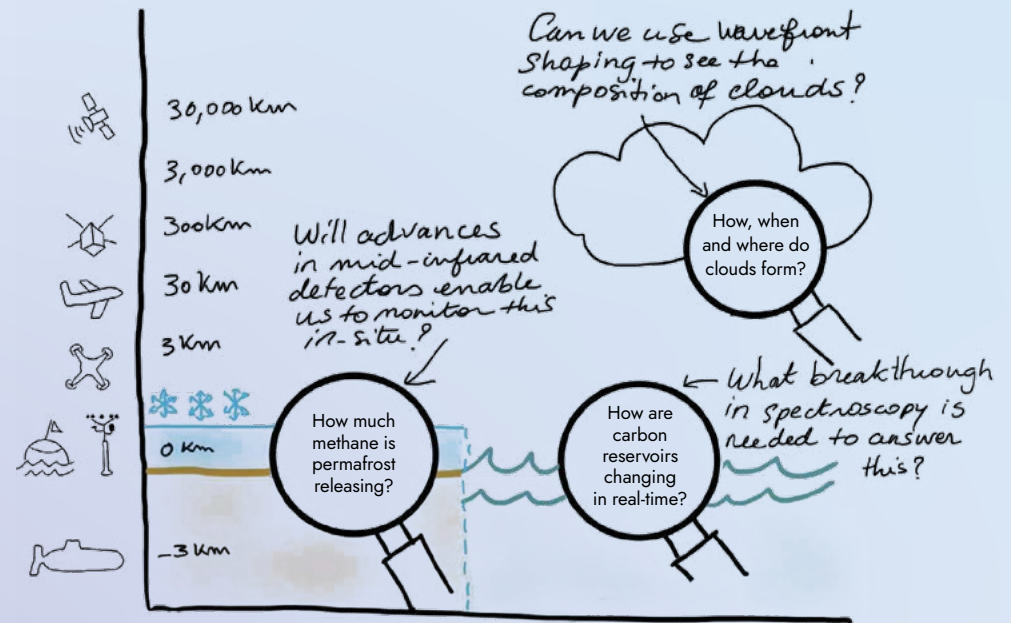 Can we use wavefront
shaping to see the
composition of clouds?
30,000 Km
3,000 Km
300 Km
30 Km
3 Km
0 Km
-3 Km
Will advances
in mid-infrared
detectors enable
us to monitor this
in-situ?
How, when
and where do
clouds form?
How much
methane is
permafrost
releasing?
How are
carbon
reservoirs
changing
in real-time?
What breakthrough
in spectroscopy is
needed to answer
this?